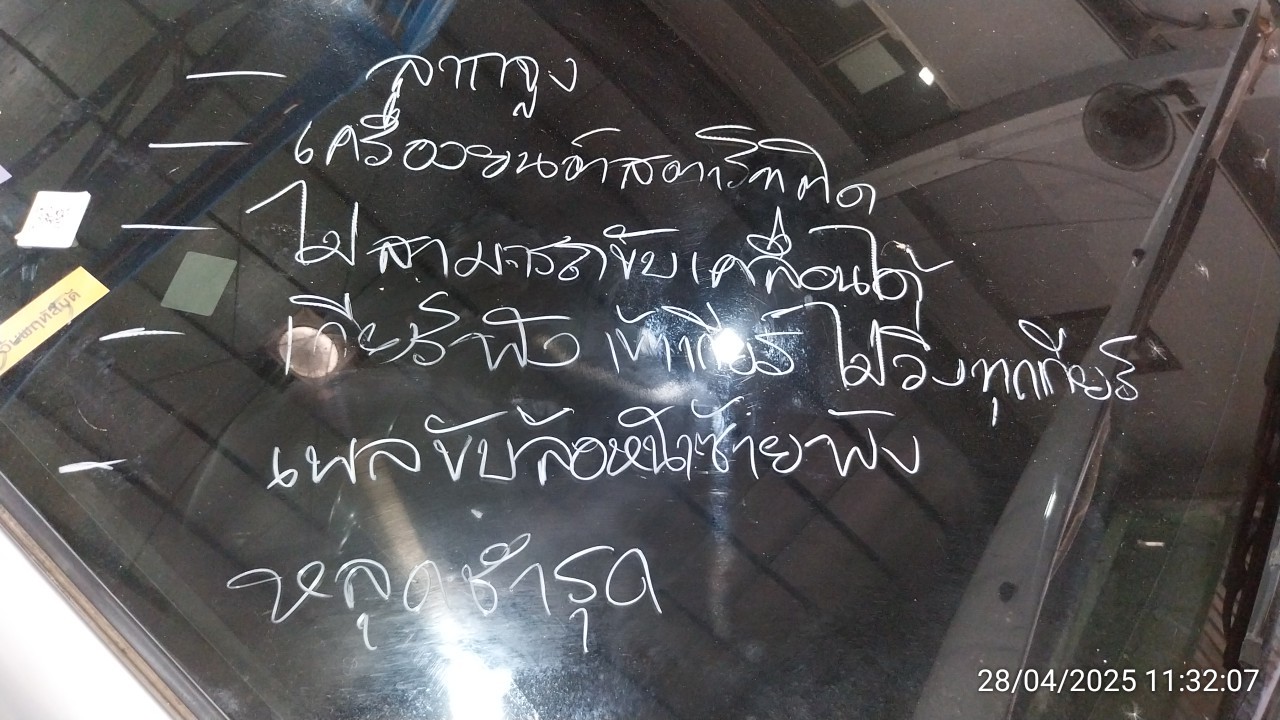 - ลากจูง
- เครื่องยนต์สตาร์ทติด
- ไม่สามารถขับเคลื่อนได้
- เกียร์พัง เข้าเกียร์ ไม่วิ่งทุกเกียร์
- เพลาขับล้อหน้าซ้ายพัง
หลุดชำรุด
28/04/2025 11:32:07